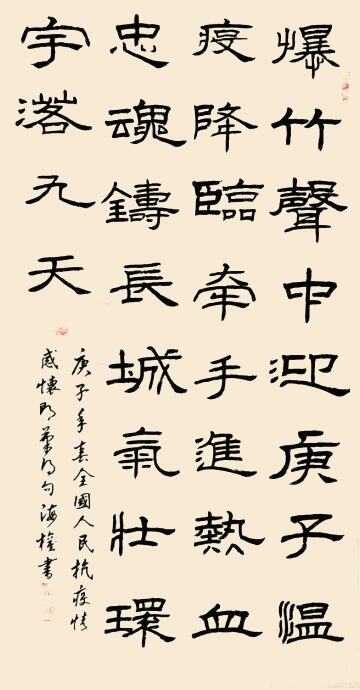 爆竹聲中迎庚子溫
疫降臨牽手進熱血
忠魂鑄長城氣壯環
宇落九天
庚子年春全國人民抗疫情
感懷即句海書